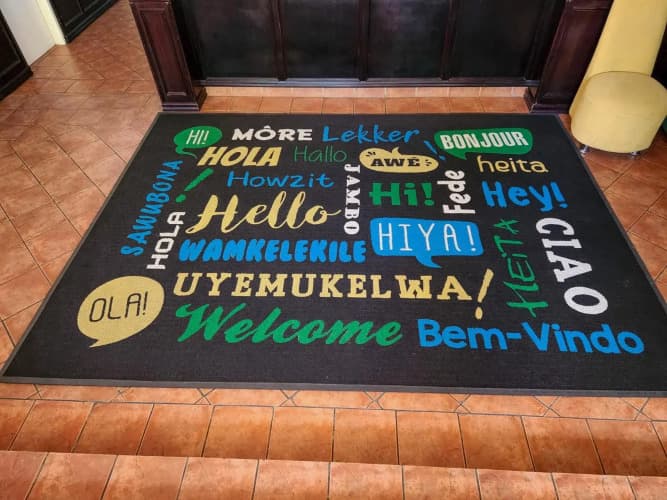 HI!
MÔRE
Lekker!
BONJOUR
HOLA
Hallo
AWÊ
heita
SAWUBONA
Howzit
JAMBO
Hi!
Fede
Hey!
HOLA
Hello
WAMKELEKILE
HIYA!
HEITA
CIAO
OLA!
UYEMUKELWA!
Welcome
Bem-Vindo